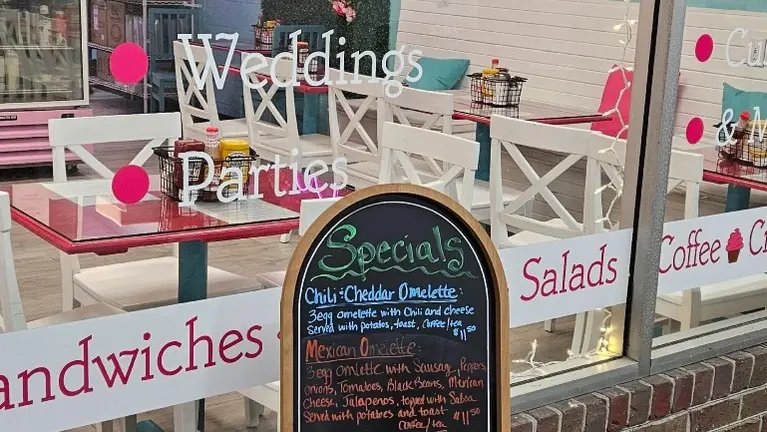 Weddings
Parties
Sandwiches
Specials
Chili-Cheddar Omelette:
3egg omelette with Chili and cheese
Served with potatos, toast, coffee/tea
$11.50
Mexican Omelette:
3 egg omlette with Sausage, Peppers,
onions, Tomatoes, Black Beans, Mexican
Cheese, Jalapenos, topped with Salsa
Served with potatoes and toast
coffee/tea $11.50
Salads
Coffee
Cu
& M
Cr